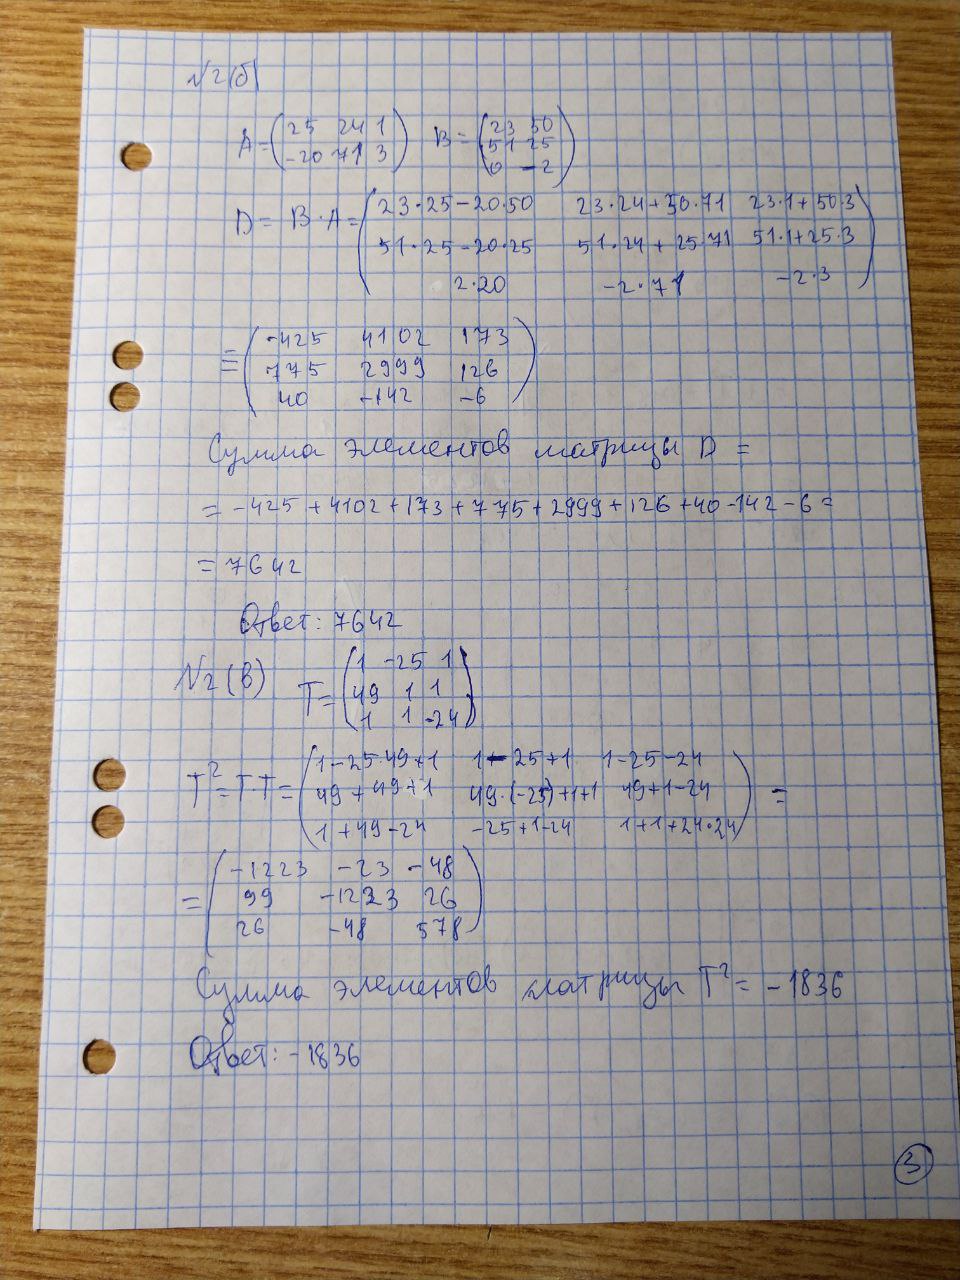 №2(б)
A = (25 24 1 / -20 71 3) B = (23 50 / 51 25 / 0 -2)
D = B·A = (23·25-20·50 23·24+50·71 23·1+50·3
51·25-20·25 51·24+25·71 51·1+25·3
2·20 -2·71 -2·3)
= (-425 4102 173
775 2999 126
40 -142 -6)
Сумма элементов матрицы D =
= -425+4102+173+775+2999+126+40-142-6=
= 7642
Ответ: 7642
№2(в) T = (1 -25 1 / 49 1 1 / 1 1 -24)
T²=T·T= (1-25·49+1 1-25+1 1-25-24
49+49+1 49·(-25)+1+1 49+1-24
1+49-24 -25+1-24 1+1+24·24) =
= (-1223 -23 -48
99 -1223 26
26 -48 578)
Сумма элементов матрицы T² = -1836
Ответ: -1836
3